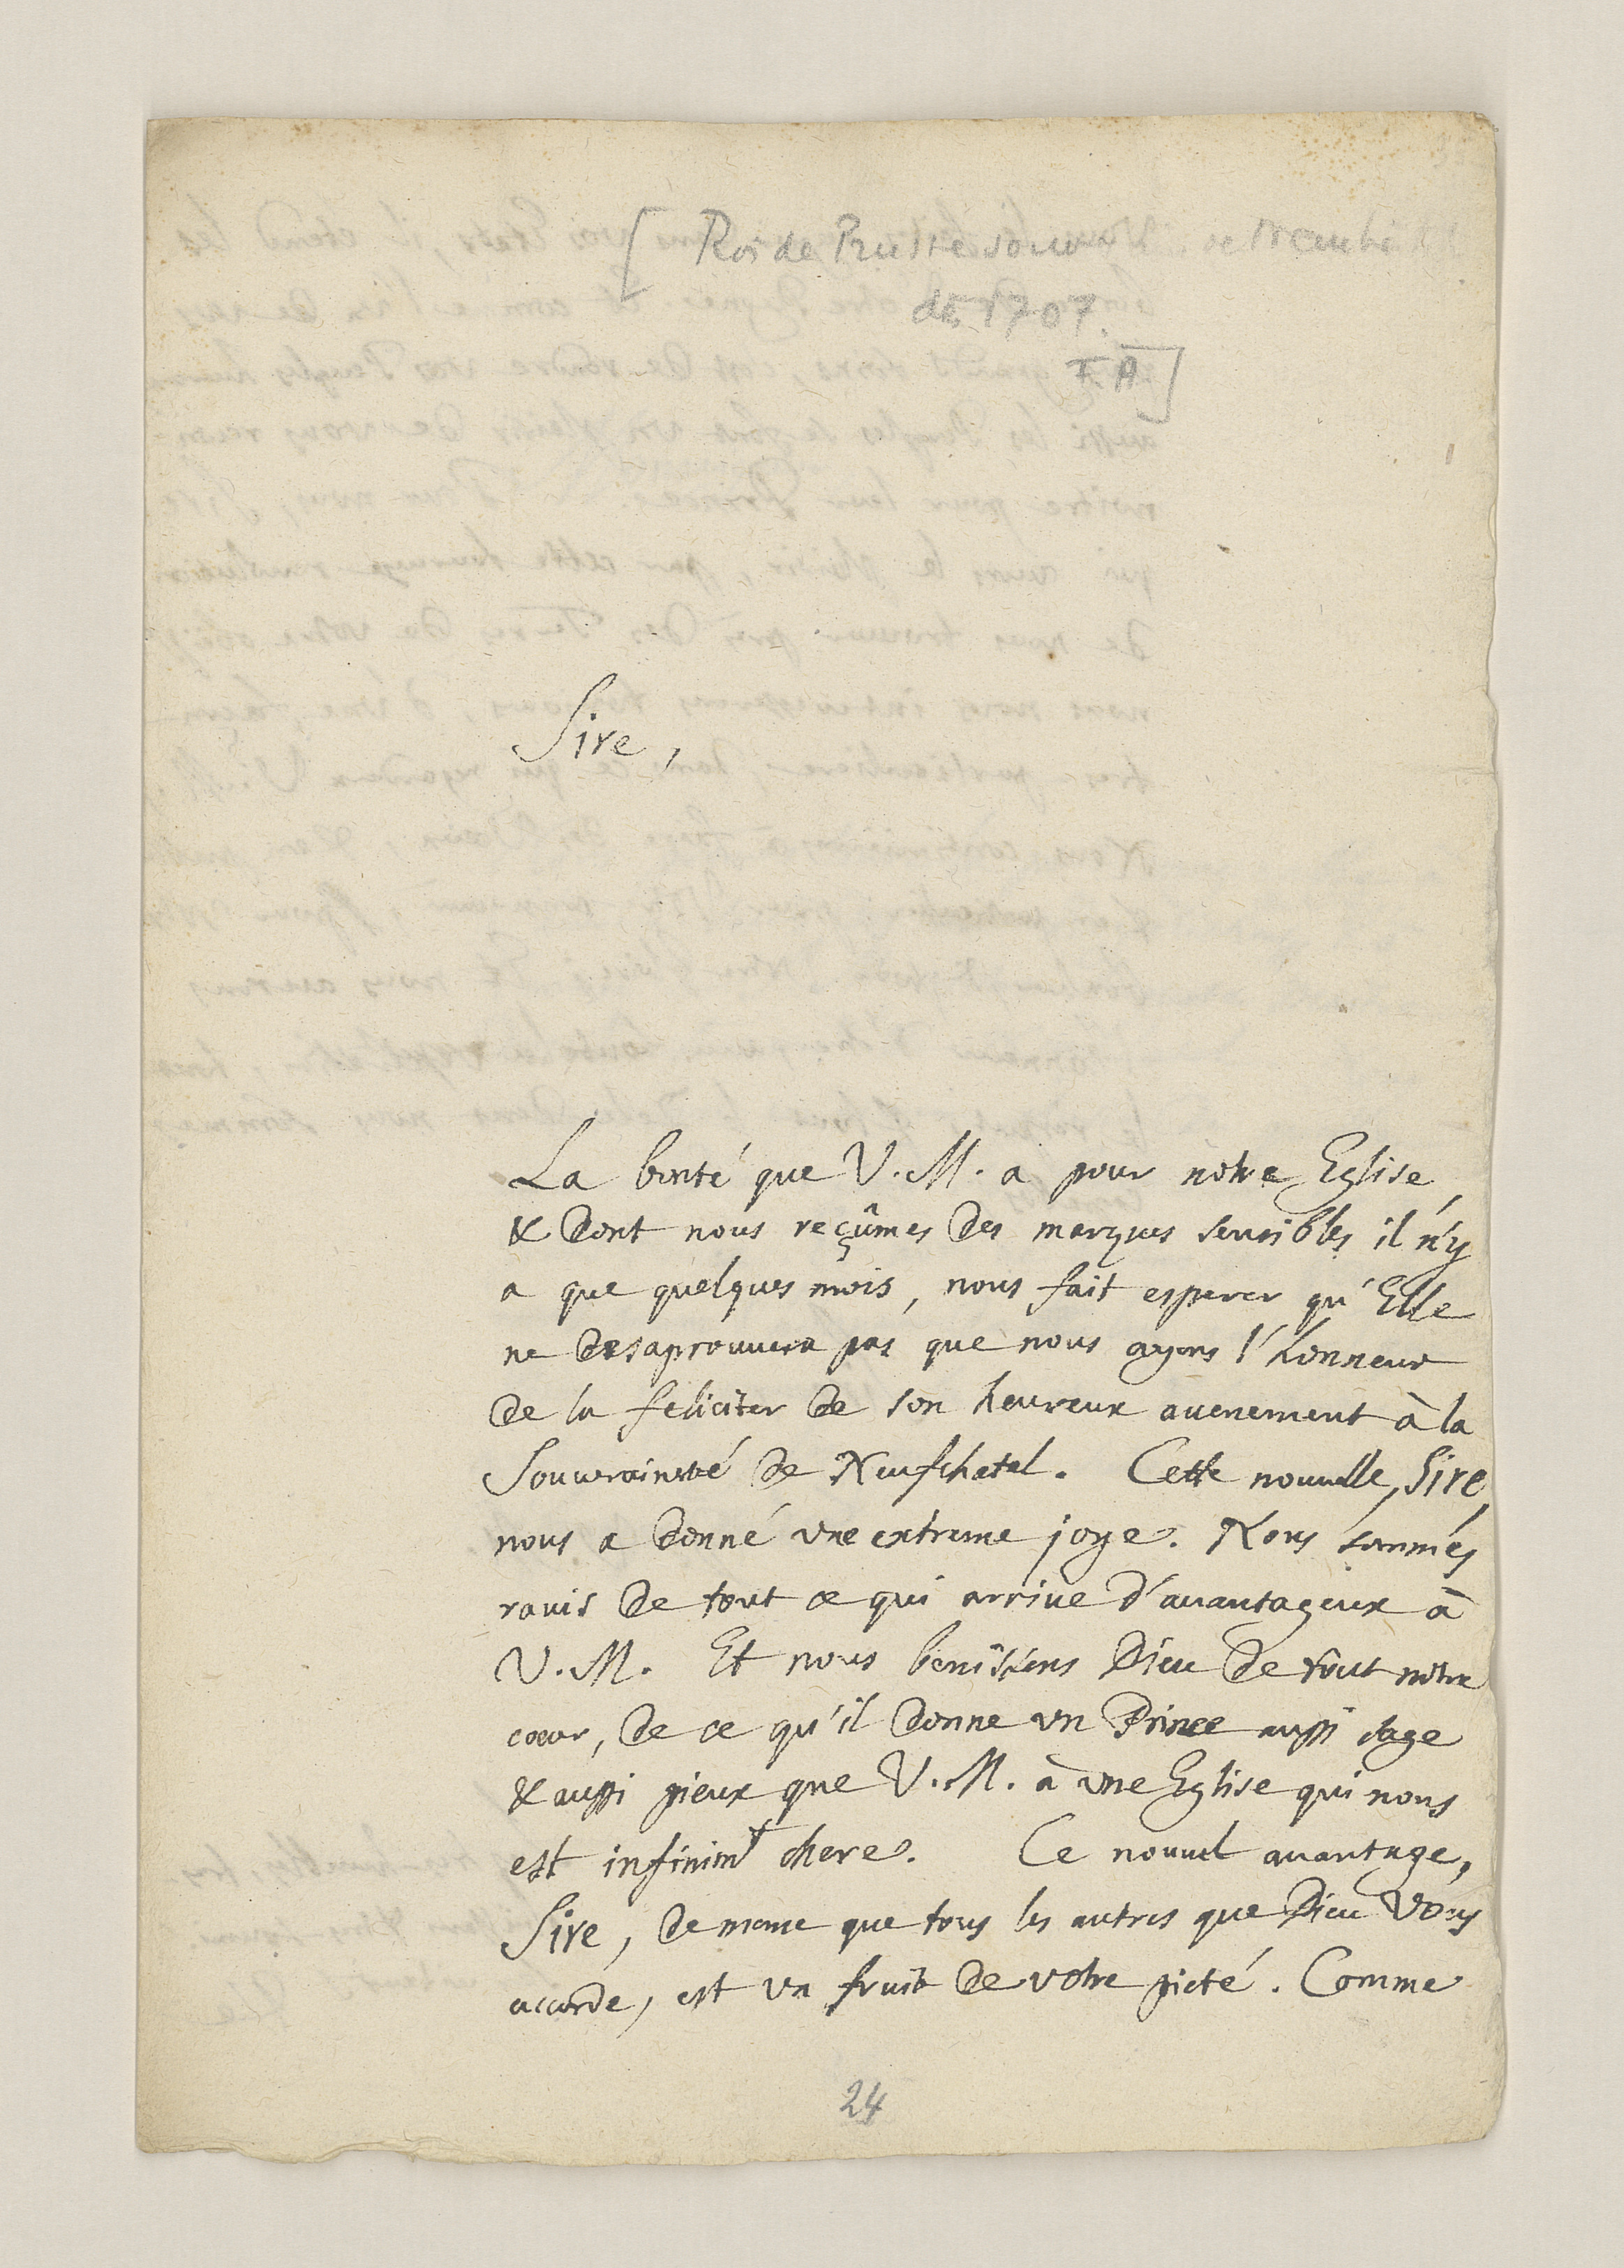 [ Roi de Prusse souv de Neuchatel
dès 1707.
F. A ]
Sire,
La bonté que V. M. a pour notre Eglise,
& dont nous reçûmes des marques sensibles il n'y
a que quelques mois, nous fait esperer qu'Elle
ne desaprouuera pas que nous ayons l'honneur
de la feliciter de son heureux auenement à la
Souuraineté de Neufchatel. Cette nouuelle, Sire,
nous a donné vne extreme joye. Nous sommes
rauis de tout ce qui arriue d'auantageux à
V. M. Et nous benissons Dieu de tout notre
cœur, de ce qu'il donne vn Prince aussi sage
& aussi pieux que V. M. à vne Eglise qui nous
est infinimt chere. Ce nouuel auantage,
Sire, de meme que tous les autres que Dieu Vous
accorde, est vn fruit de votre pieté. Comme
24